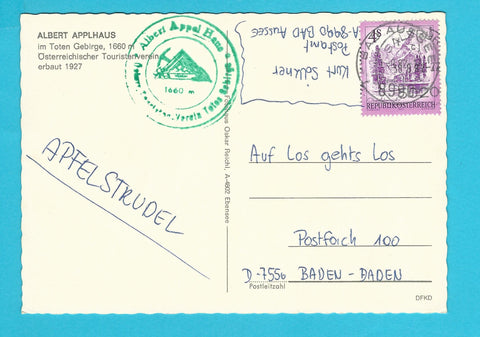 ALBERT APPLHAUS
im Toten Gebirge, 1660 m
Österreichischer Touristenverein
erbaut 1927
Albert Appel Haus
1660 m
Verein Totes Gebirge
Kurt Sölkner
Postamt
A-8990 BAD Aussee
BAD AUSSEE
8990
REPUBLIK ÖSTERREICH
APFELSTRUDEL
Oskar Reichl, A-4802 Ebensee
Auf Los gehts Los
Postfach 100
D-7556 BADEN-BADEN
Postleitzahl
DFKD